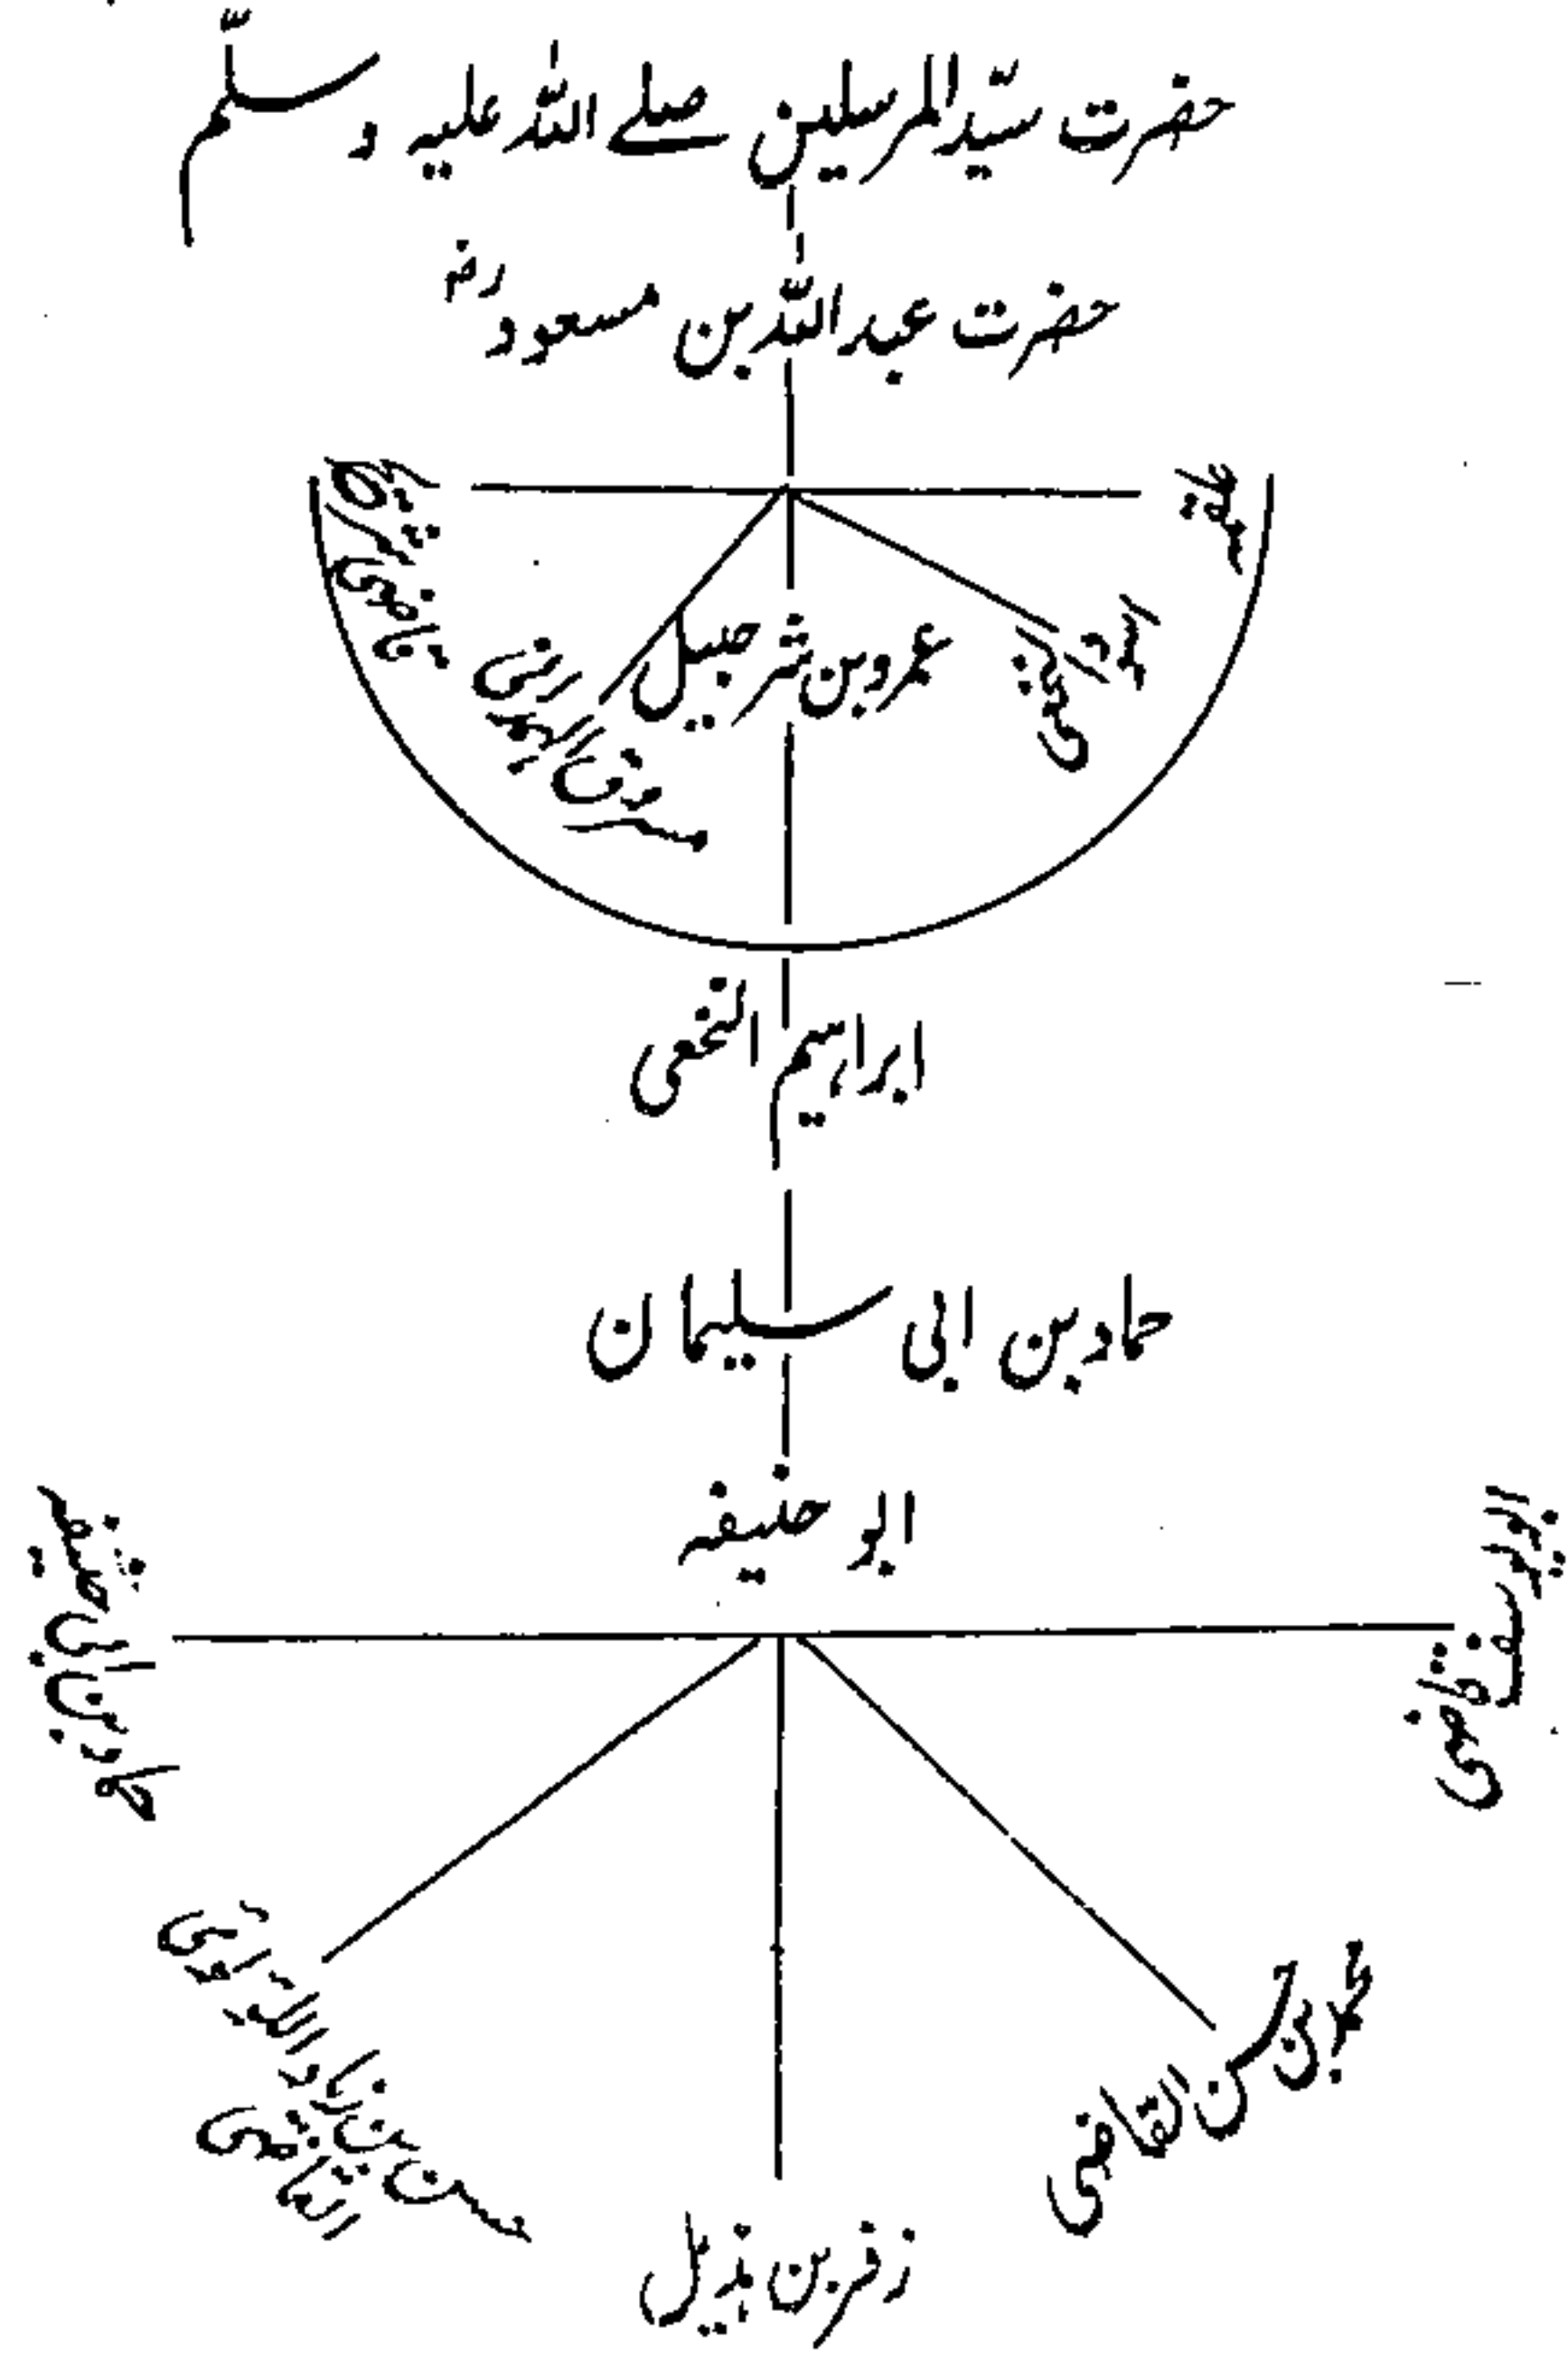 حضرت سیّد المرسلین صلے اللہ علیہ و سلّم
حضرت عبد اللہ بن مسعود رضـ
علقمۃ
اسود النخعی
عمرو بن شرحبیل
مسروق الہمدانی
شریح القاضی
ابراہیم النخعی
حماد بن ابی سلیمان
ابو حنیفہ
ابو یوسف قاضی
محمد بن حسن القاضی
زفر بن ہذیل
حسن بن زیاد اللؤلؤی القاضی
حماد بن ابی حنیفہ